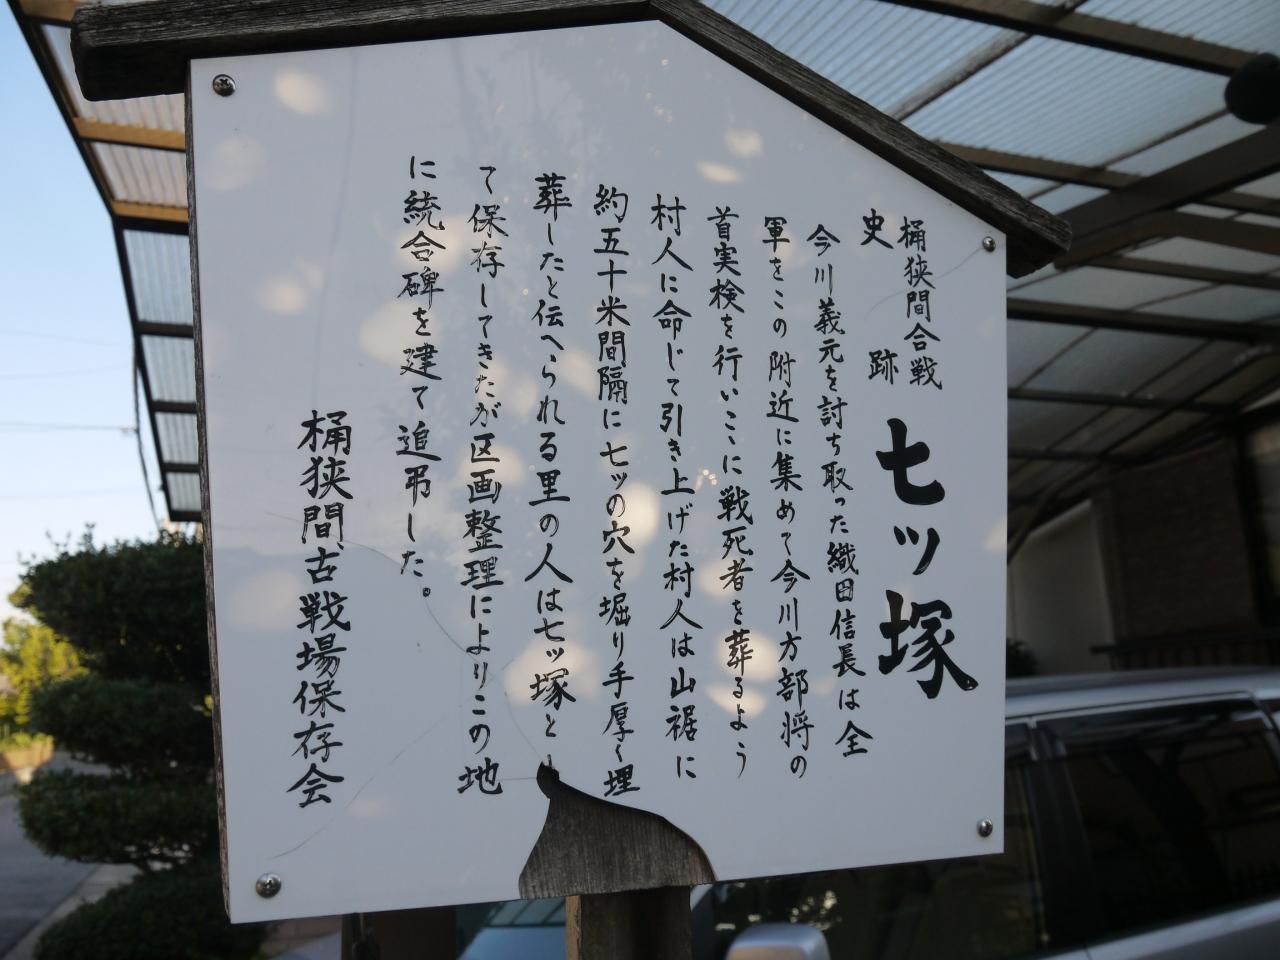 桶狭間合戦
史跡 七ッ塚
今川義元を討ち取った織田信長は全
軍をこの附近に集めて今川方部将の
首実検を行いこゝに戦死者を葬るよう
村人に命じて引き上げた村人は山裾に
約五十米間隔に七ッの穴を堀り手厚く埋
葬したと伝へられる里の人は七ッ塚とし
て保存してきたが区画整理によりこの地
に統合碑を建て追弔した。
桶狭間古戦場保存会